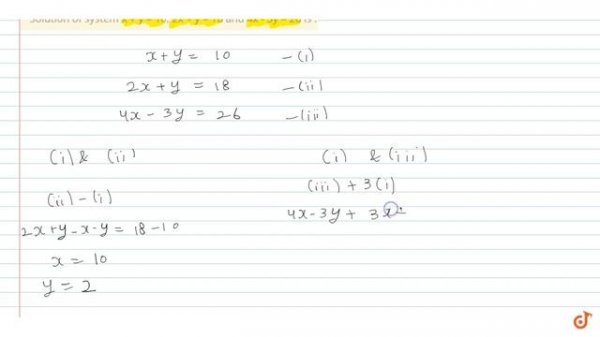 Solution of system x + y = 10, 2x + y = 18 and 4x - 3y = 26 is :
x + y = 10 - (i)
2x + y = 18 - (ii)
4x - 3y = 26 - (iii)
(i) & (ii)
(ii) - (i)
2x + y - x - y = 18 - 10
x = 10
y = 2
(i) & (iii)
(iii) + 3(i)
4x - 3y + 3x
doubtnut